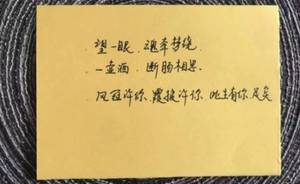 望一眼，魂牵梦绕，
一壶酒，断肠相思。
凤冠许你，霞披许你，此生有你，足矣